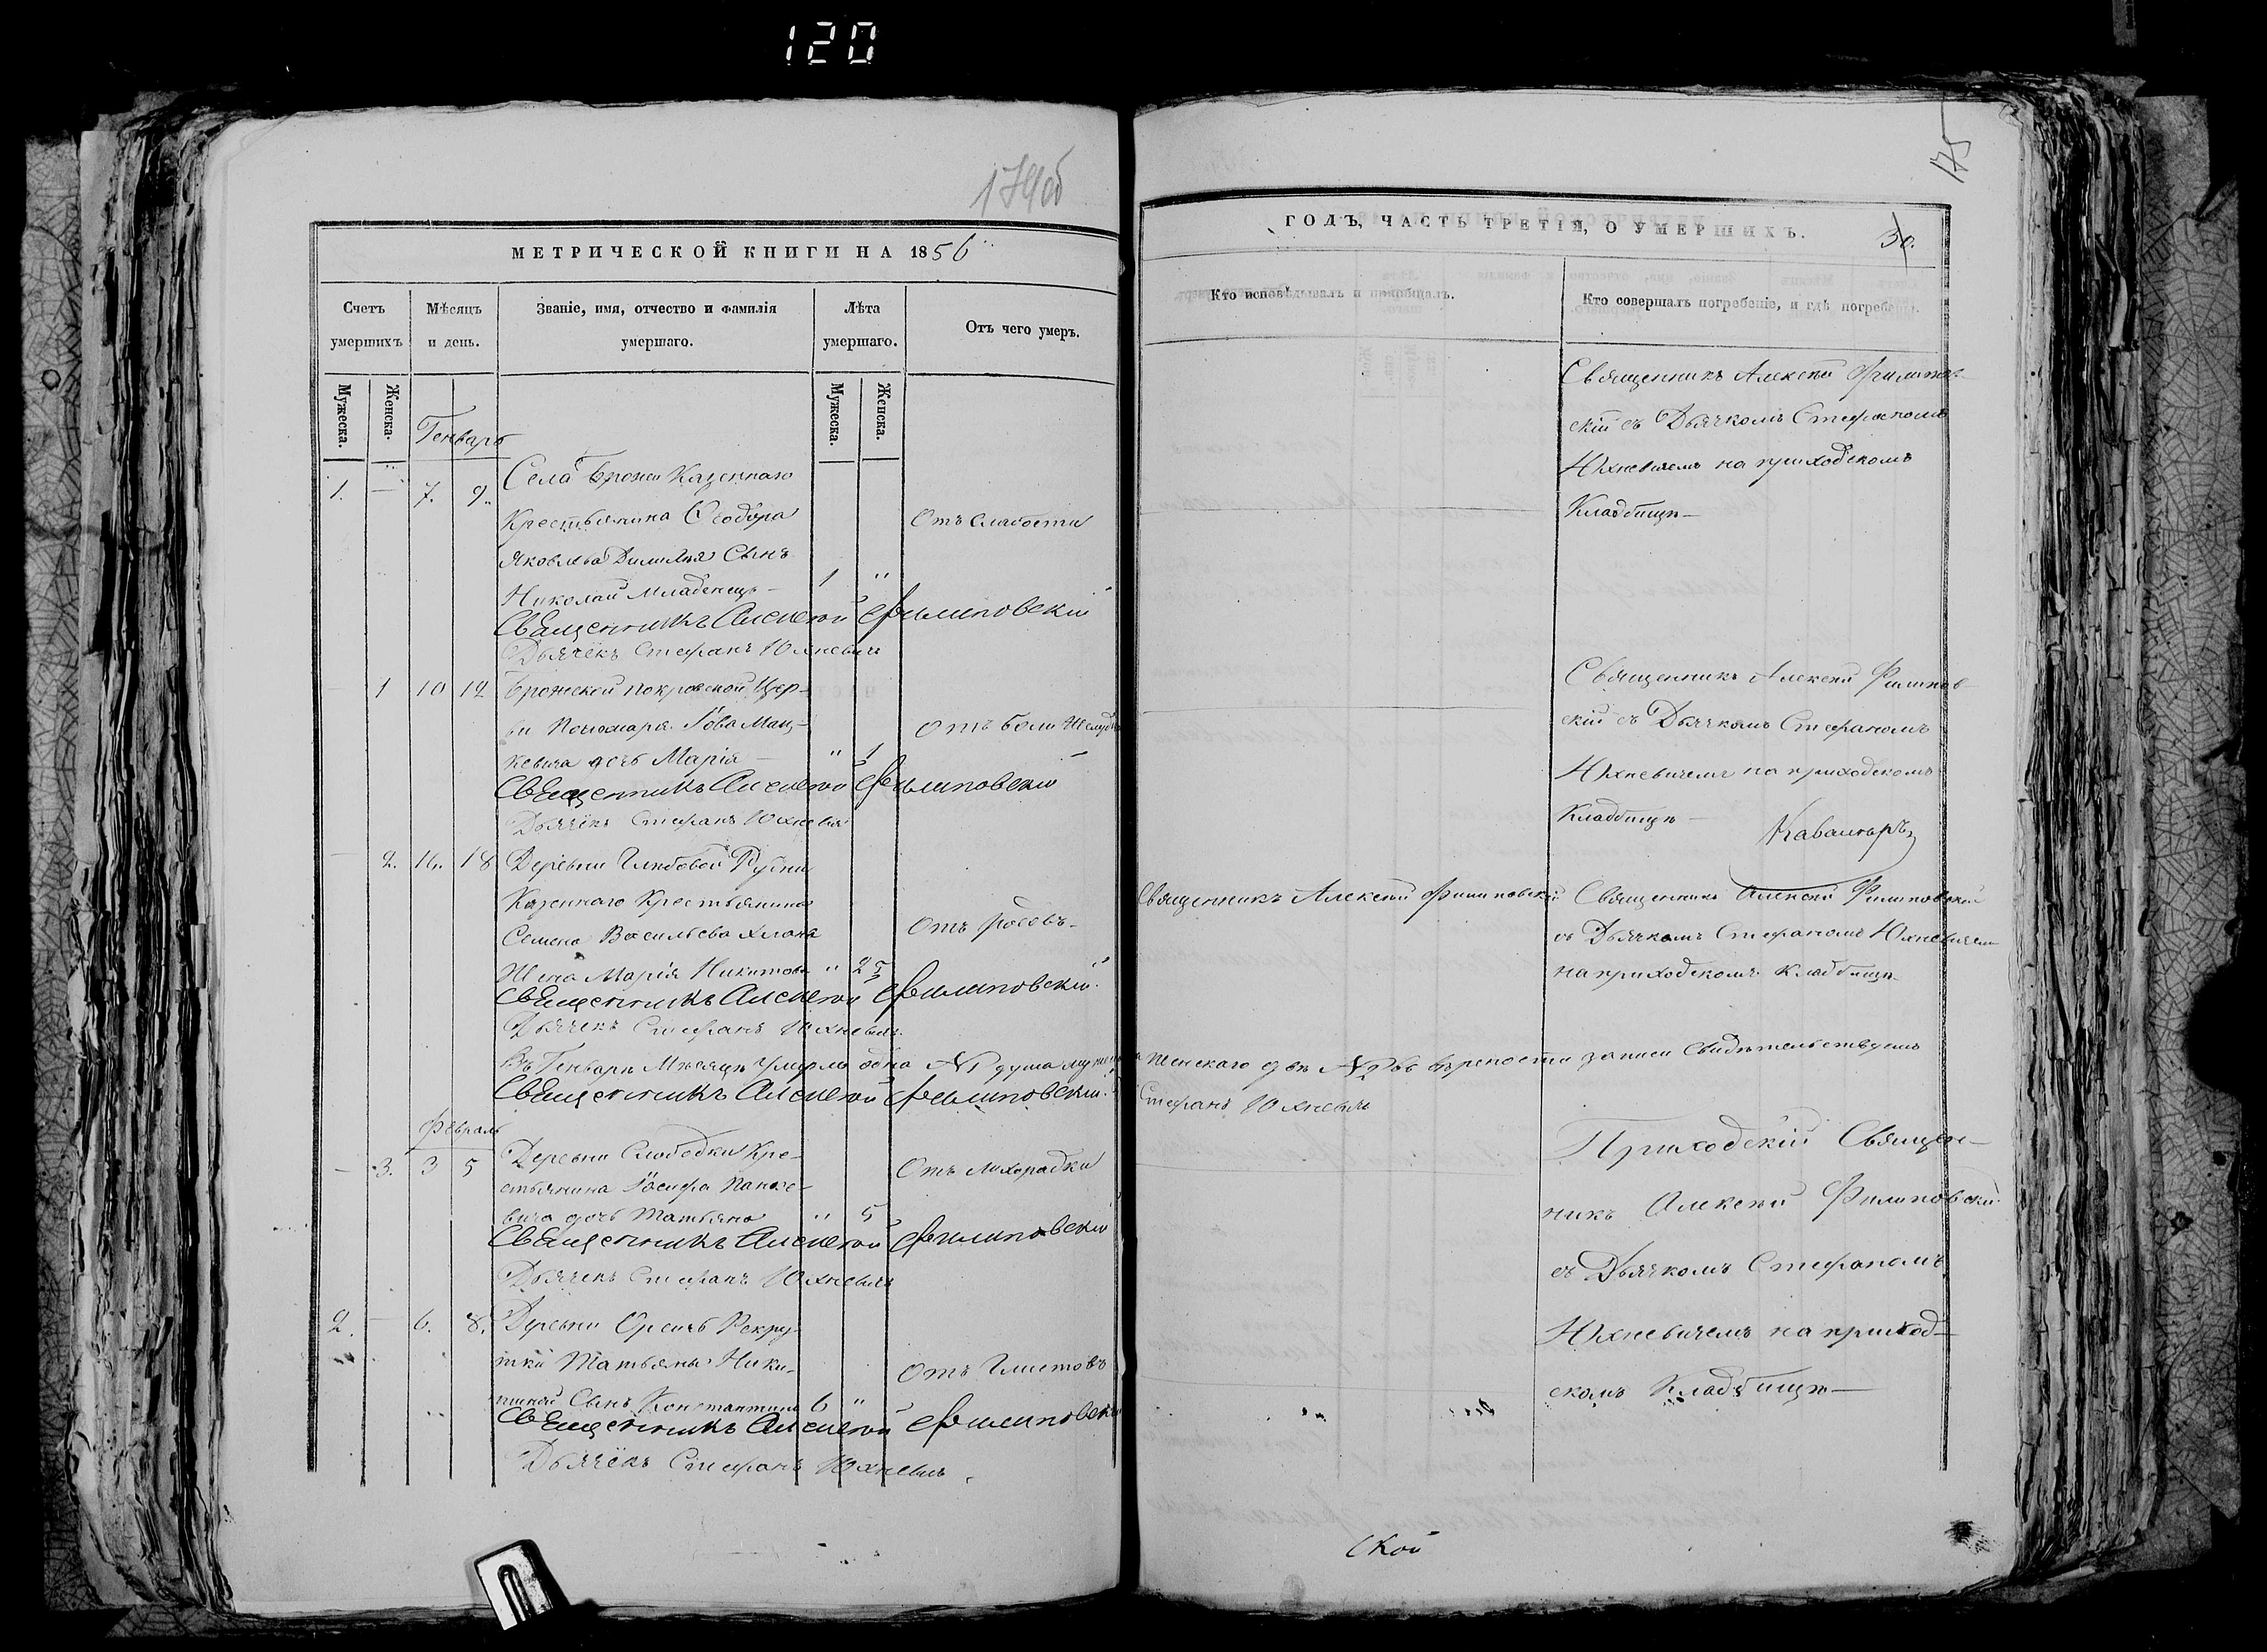 120
179об
175
МЕТРИЧЕСКОЙ КНИГИ НА 1856
Счетъ умершихъ
Мѣсяцъ и день.
Званіе, имя, отчество и фамилія умершаго.
Лѣта умершаго.
Отъ чего умеръ.
Мужеска.
Женска.
Мужеска.
Женска.
Генварь
1. — 7. 9.
Села Брожи Казеннаго
Крестьянина Ѳеодора
Яковлева Сынъ
Николай Младенецъ — 1 "
Отъ слабости
Священникъ Алексѣй Филиповскій
Дьячёкъ Стефанъ Юхневичъ
— 1 10 12
Брожской покровской Цер-
ви Пономаря Іова Мац-
кевича дочь Марія — " 1
Отъ боли Желудка
Священникъ Алексѣй Филиповскій
Дьячёкъ Стефанъ Юхневичъ
— 2. 16. 18
Деревни Глѣбовой Рудни
Казеннаго Крестьянина
Семена Васильева
Жена Марія Никитова " 25
Отъ родовъ —
Священникъ Алексѣй Филиповскій
Дьячекъ Стефанъ Юхневичъ
Въ Генварѣ Мѣсяцѣ умерло одна №1 душа
Священникъ Алексѣй Филиповскій
Февраль
— 3. 3 5
Деревни Слободки Кре-
стьянина Іосифа Панке-
вича дочь Татьяна " 5
Отъ лихорадки
Священникъ Алексѣй Филиповскій
Дьячекъ Стефанъ Юхневичъ
2. — 6. 8.
Деревни Оресичъ Рекру-
тки Татьяны Ники-
тиной Сынъ Константинъ 6 "
Отъ Глистовъ
Священникъ Алексѣй Филиповскій
Дьячёкъ Стефанъ Юхневичъ
ГОДЪ, ЧАСТЬ ТРЕТІЯ, О УМЕРШИХЪ.
30.
Кто исповѣдывалъ и пріобщалъ.
Кто совершалъ погребеніе, и гдѣ погребены.
Священникъ Алексѣй Филипов-
скій съ Дьячкомъ Стефаномъ
Юхневичемъ на приходскомъ
Кладбищѣ —
Священникъ Алексѣй Филипов-
скій съ Дьячкомъ Стефаномъ
Юхневичемъ на приходскомъ
Кладбищѣ —
Кавалеръ
Священникъ Алексѣй Филиповскій
Священникъ Алексѣй Филиповскій
съ Дьячкомъ Стефаномъ Юхневичемъ
на приходскомъ Кладбищѣ
женскаго двѣ №2 въ вѣрности записи свидѣтельствуемъ
Стефанъ Юхневичъ
Приходскій Священ-
никъ Алексѣй Филиповскій
съ Дьячкомъ Стефаномъ
Юхневичемъ на приход-
скомъ Кладбищѣ —
ской